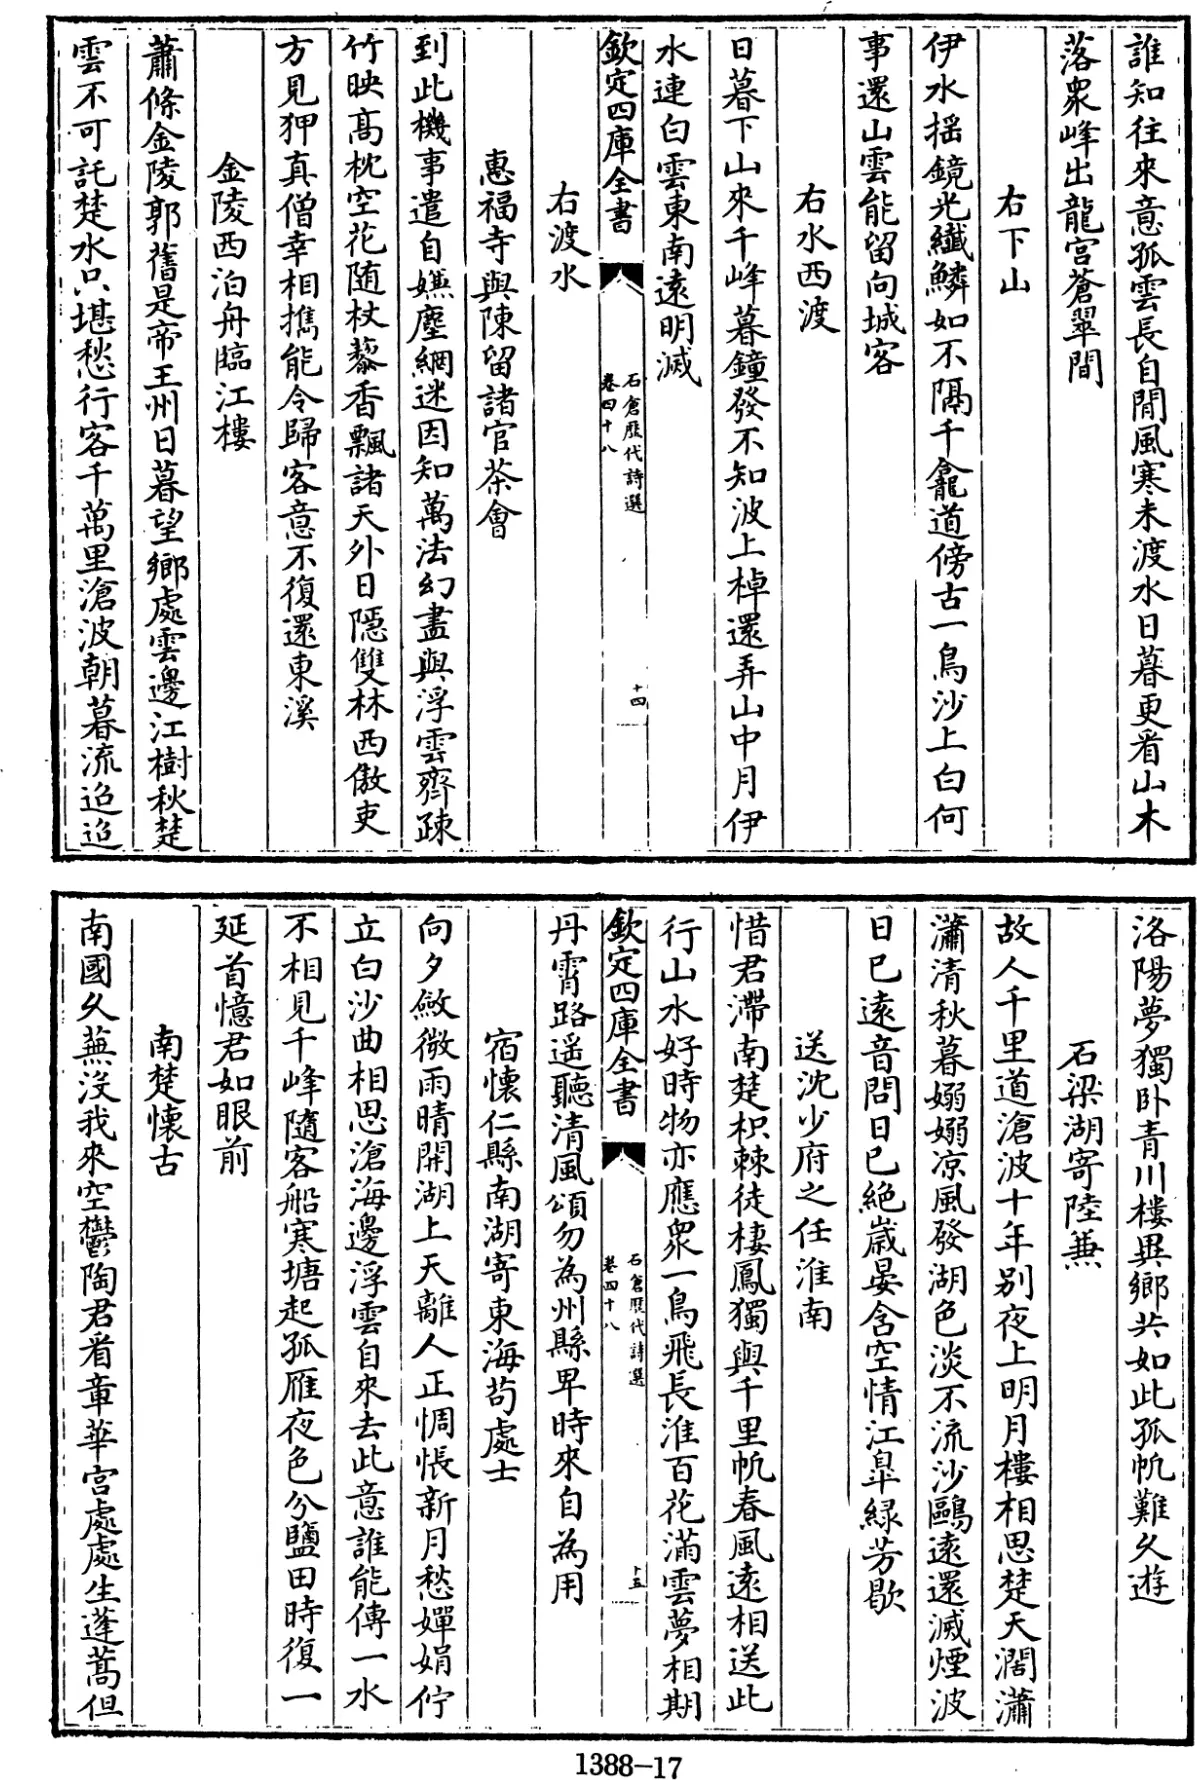 誰知往來意孤雲長自閒風寒未渡水日暮更看山木
落衆峰出龍宮蒼翠間
右下山
伊水揺鏡光纖鱗如不隔千龕道傍古一鳥沙上白何
事還山雲能留向城客
右水西渡
日暮下山來千峰暮鐘發不知波上棹還弄山中月伊
水連白雲東南遠明滅
欽定四庫全書
石倉歴代詩選
卷四十八
十四
右渡水
惠福寺與陳留諸官茶會
到此機事遣自嫌塵網迷因知萬法幻盡與浮雲齊疎
竹映髙枕空花随杖藜香飄諸天外日隱雙林西傲吏
方見狎真僧幸相攜能令歸客意不復還東溪
金陵西泊舟臨江樓
蕭條金陵郭舊是帝王州日暮望鄉處雲邊江樹秋楚
雲不可託楚水只堪愁行客千萬里滄波朝暮流迨迨
洛陽夢獨卧青川樓異鄉共如此孤帆難久遊
石梁湖寄陸兼
故人千里道滄波十年别夜上明月樓相思楚天濶瀟
瀟清秋暮嫋嫋凉風發湖色淡不流沙鷗遠還滅煙波
日已遠音問日已絶歲晏含空情江臯緑芳歇
送沈少府之任淮南
惜君滯南楚枳棘徒棲鳳獨與千里帆春風遠相送此
行山水好時物亦應衆一鳥飛長淮百花滿雲夢相期
欽定四庫全書
石倉歴代詩選
卷四十八
十五
丹霄路遥聽清風頌勿為州縣卑時來自為用
宿懷仁縣南湖寄東海荀處士
向夕斂微雨晴開湖上天離人正惆悵新月愁嬋娟佇
立白沙曲相思滄海邊浮雲自來去此意誰能傳一水
不相見千峰隨客船寒塘起孤雁夜色分鹽田時復一
延首憶君如眼前
南楚懷古
南國久蕪沒我來空鬱陶君看章華宫處處生蓬蒿但
1388-17